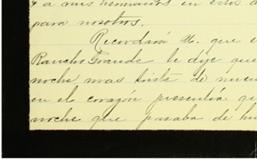 y a mis hermanos en estos d
para nosotros.
Recordará U. que e
Rancho Grande le dije que
noche mas triste de nues
en el corazón presentía qu
noche que pasaba de hu